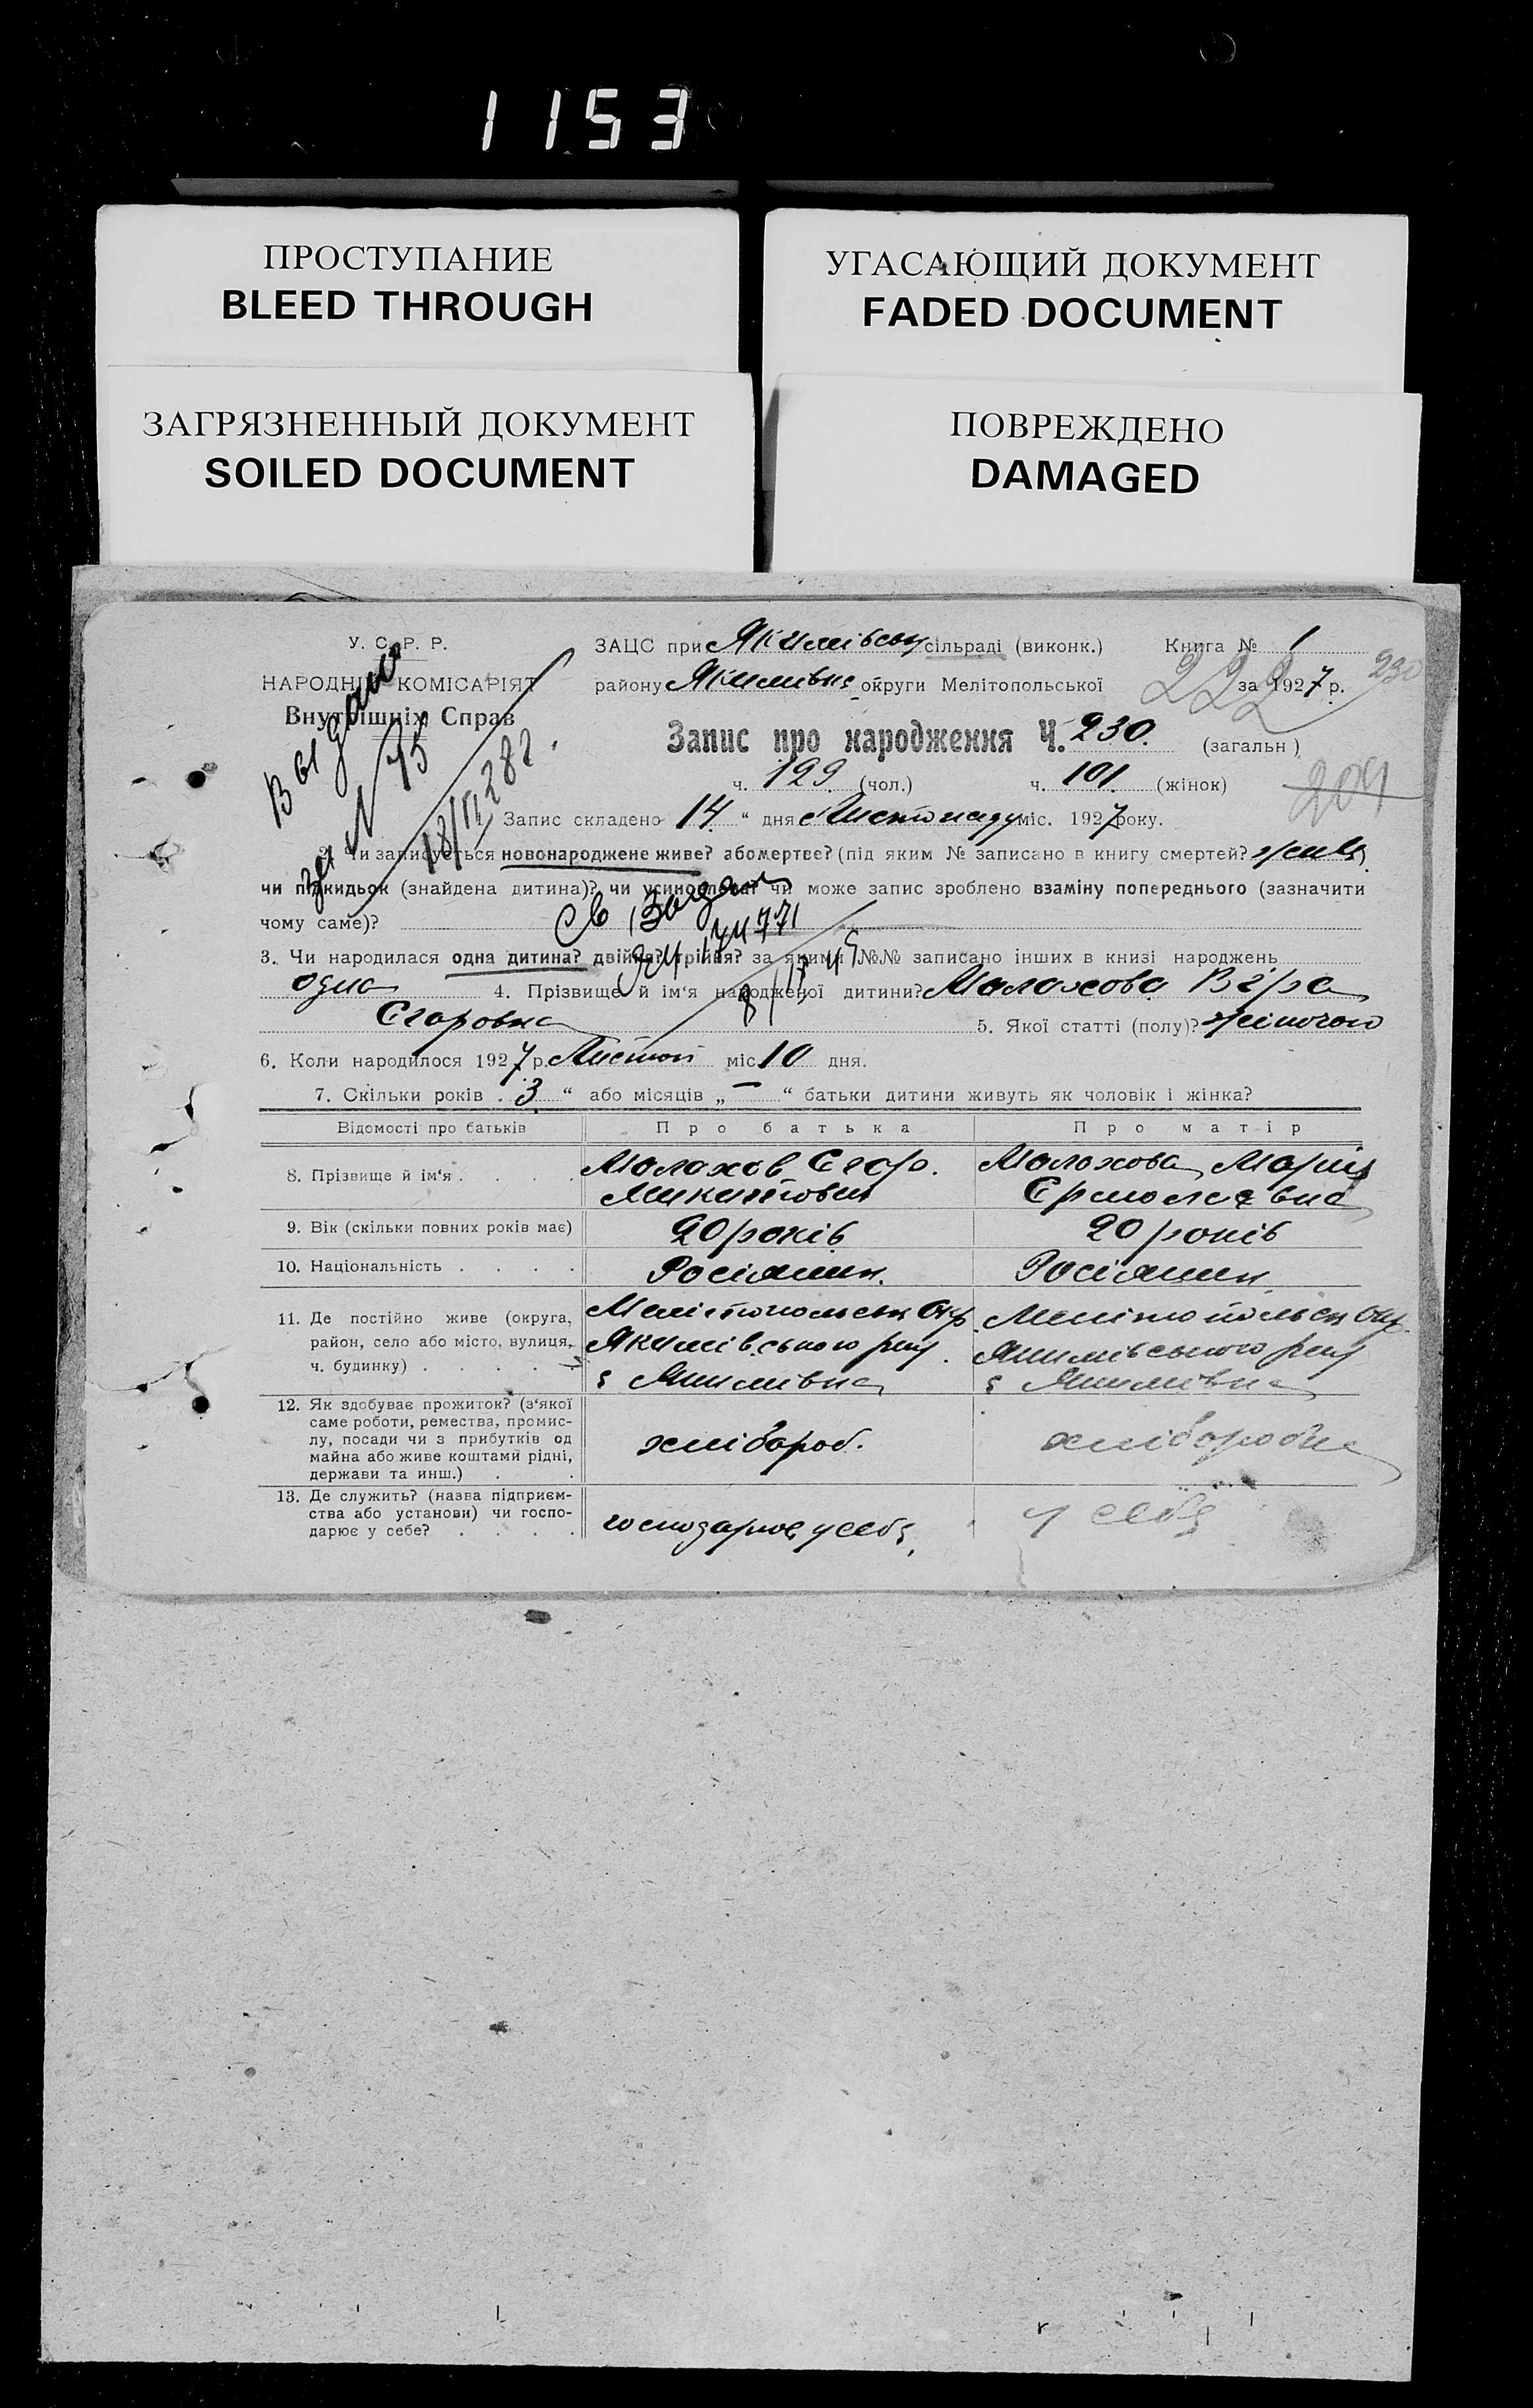 1153
ПРОСТУПАНИЕ
BLEED THROUGH
УГАСАЮЩИЙ ДОКУМЕНТ
FADED DOCUMENT
ЗАГРЯЗНЕННЫЙ ДОКУМЕНТ
SOILED DOCUMENT
ПОВРЕЖДЕНО
DAMAGED
У. С. Р. Р.
НАРОДНІЙ КОМІСАРІЯТ
Внутрішніх Справ
ЗАЦС при Якимівськ сільраді (виконк.) Книга № 1
району Якимівка округи Мелітопольської за 1927 р.
222
230
Запис про народження Ч. 230. (загальн)
ч. 129 (чол.) ч. 101. (жінок)
204
Выдано
N 75
18/II 282
Запис складено 14 " дня Листопаду міс. 1927 року.
2. Чи записується новонароджене живе? або мертве? (під яким № записано в книгу смертей? живе)
чи підкидьок (знайдена дитина)? чи усиновлена? чи може запис зроблено взаміну попереднього (зазначити
чому саме)?
Св Выдан
174771
3. Чи народилася одна дитина? двійня? трійня? за якими №№ записано інших в книзі народжень
одна 4. Прізвище й ім'я народженої дитини? Малахова Віра
Єгоровна 5. Якої статті (полу)? жіночою
6. Коли народилося 1927 р. Листоп міс 10 дня.
7. Скільки років 3 " або місяців „ — " батьки дитини живуть як чоловік і жінка?
Відомості про батьків Про батька Про матір
8. Прізвище й ім'я . . . . Малахов Єгор. Малахова Марія
Микитович Єрмолаєвна
9. Вік (скільки повних років має) 20 років 20 років
10. Національність . . . . Росіянин. Росіянин
11. Де постійно живе (округа, Мелітопольськ Окр. Мелітопольськ Окр.
район, село або місто, вулиця, Якимівського рну. Якимівського рну
ч. будинку) . . . . . с Якимівка с Якимівка
12. Як здобуває прожиток? (з'якої
саме роботи, ремества, промис-
лу, посади чи з прибутків од хлібороб. хлібородка
майна або живе коштами рідні,
держави та инш.) . .
13. Де служить? (назва підприєм-
ства або установи) чи госпо- господарює у себе, у себе
дарює у себе? . . . .